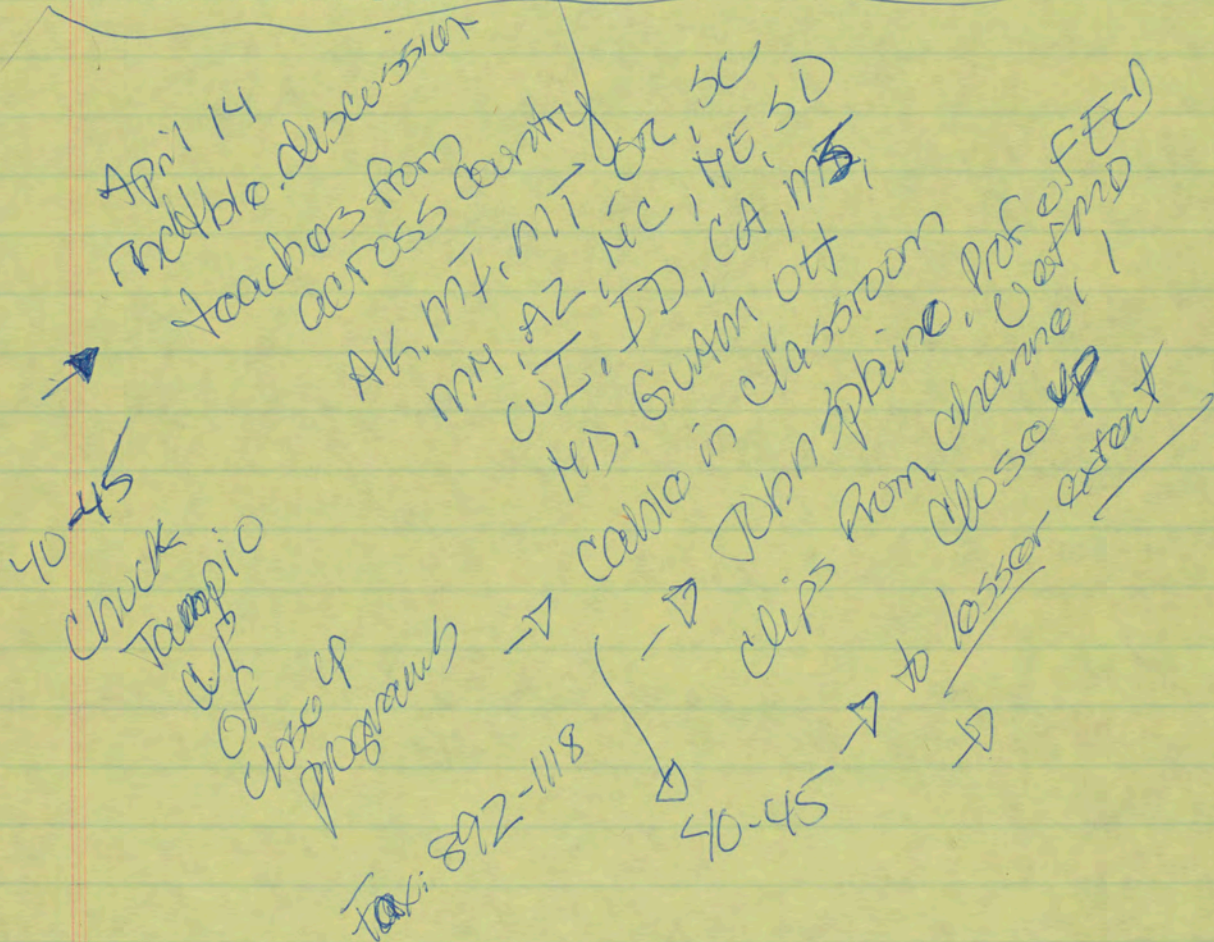 April 14
roundtable discussion
teachers from
across country
AK, MI, MT, OR, SC
MN, AZ, NC, NE, SD
WI, ID, CA, MS,
ND, GUAM OH
cable in classroom
→ John Splaine, Prof of ED
U of MD
clips from channel 1
close up
→ to lesser extent
→
40-45
Chuck
Tampio
V.P.
of
Close Up
programs →
Fax: 892-1118
→ 40-45